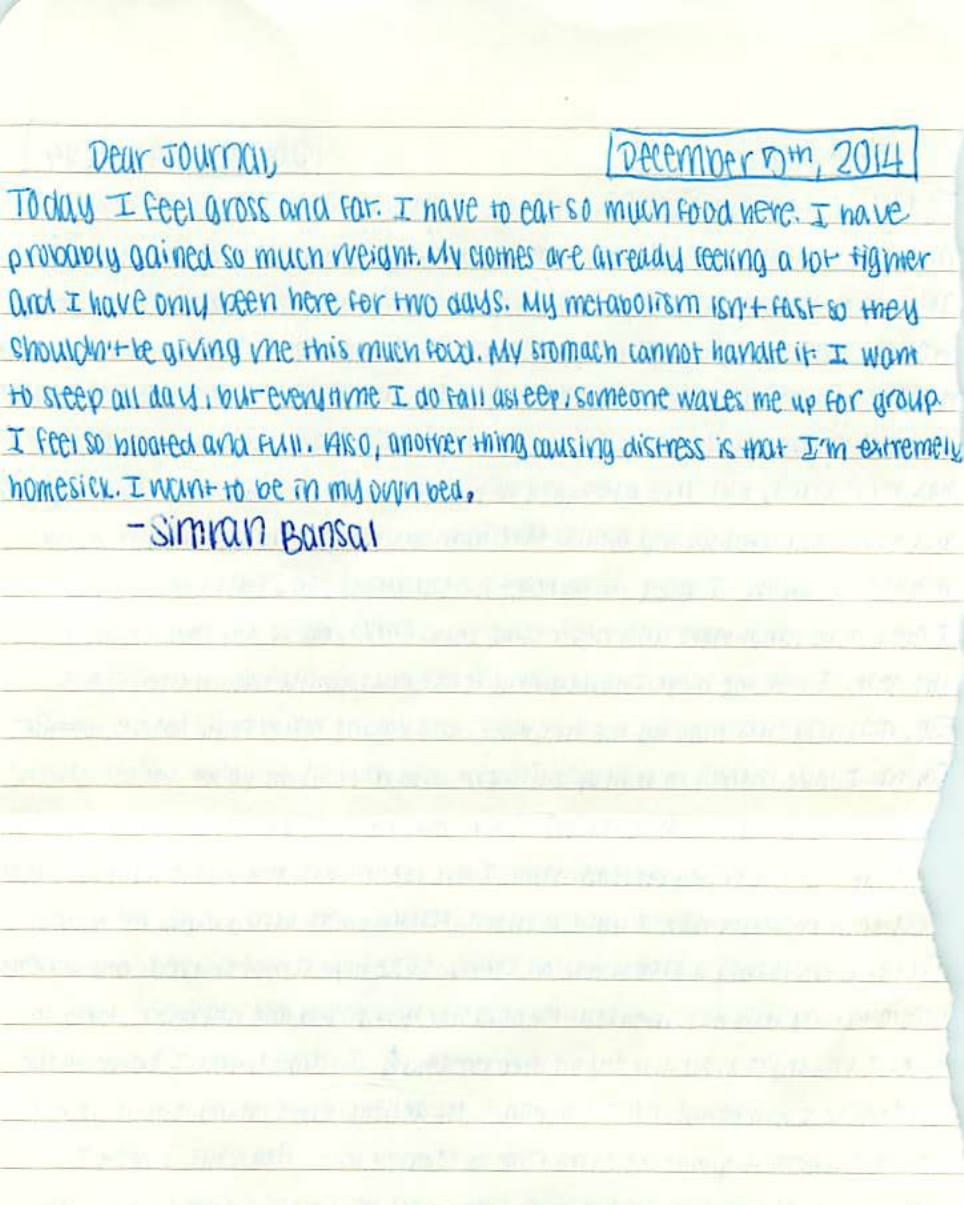 Dear Journal,
December 5th, 2014
Today I feel gross and fat. I have to eat so much food here. I have
probably gained so much weight. My clothes are already feeling a lot tighter
and I have only been here for two days. My metabolism isn't fast so they
shouldn't be giving me this much food. My stomach cannot handle it. I want
to sleep all day, but everytime I do fall asleep, someone wakes me up for group.
I feel so bloated and full. Also, another thing causing distress is that I'm extremely
homesick. I want to be in my own bed.
-Simran Bansal